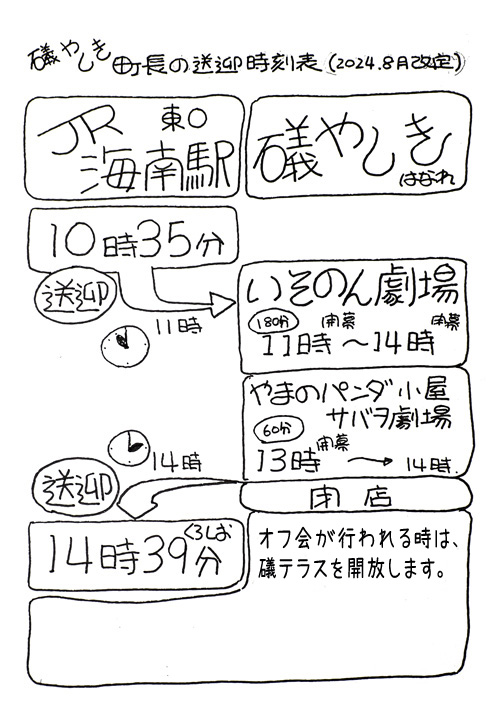 磯やしき町長の送迎時刻表(2024.8月改定)
JR 東口
海南駅
磯やしき
はなれ
10時35分
送迎
11時
いそのん劇場
180分 開幕 閉幕
11時〜14時
やまのパンダ小屋
サバヲ劇場
60分 開幕
13時→14時.
14時
送迎
閉店
くろしお
14時39分
オフ会が行われる時は、
磯テラスを開放します。